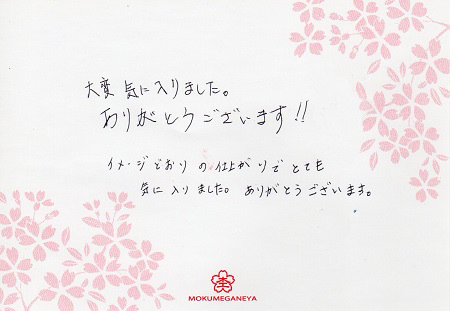 大変気に入りました。
ありがとうございます!!
イメージどおりの仕上がりでとても
気に入りました。ありがとうございます。
杢
MOKUMEGANEYA